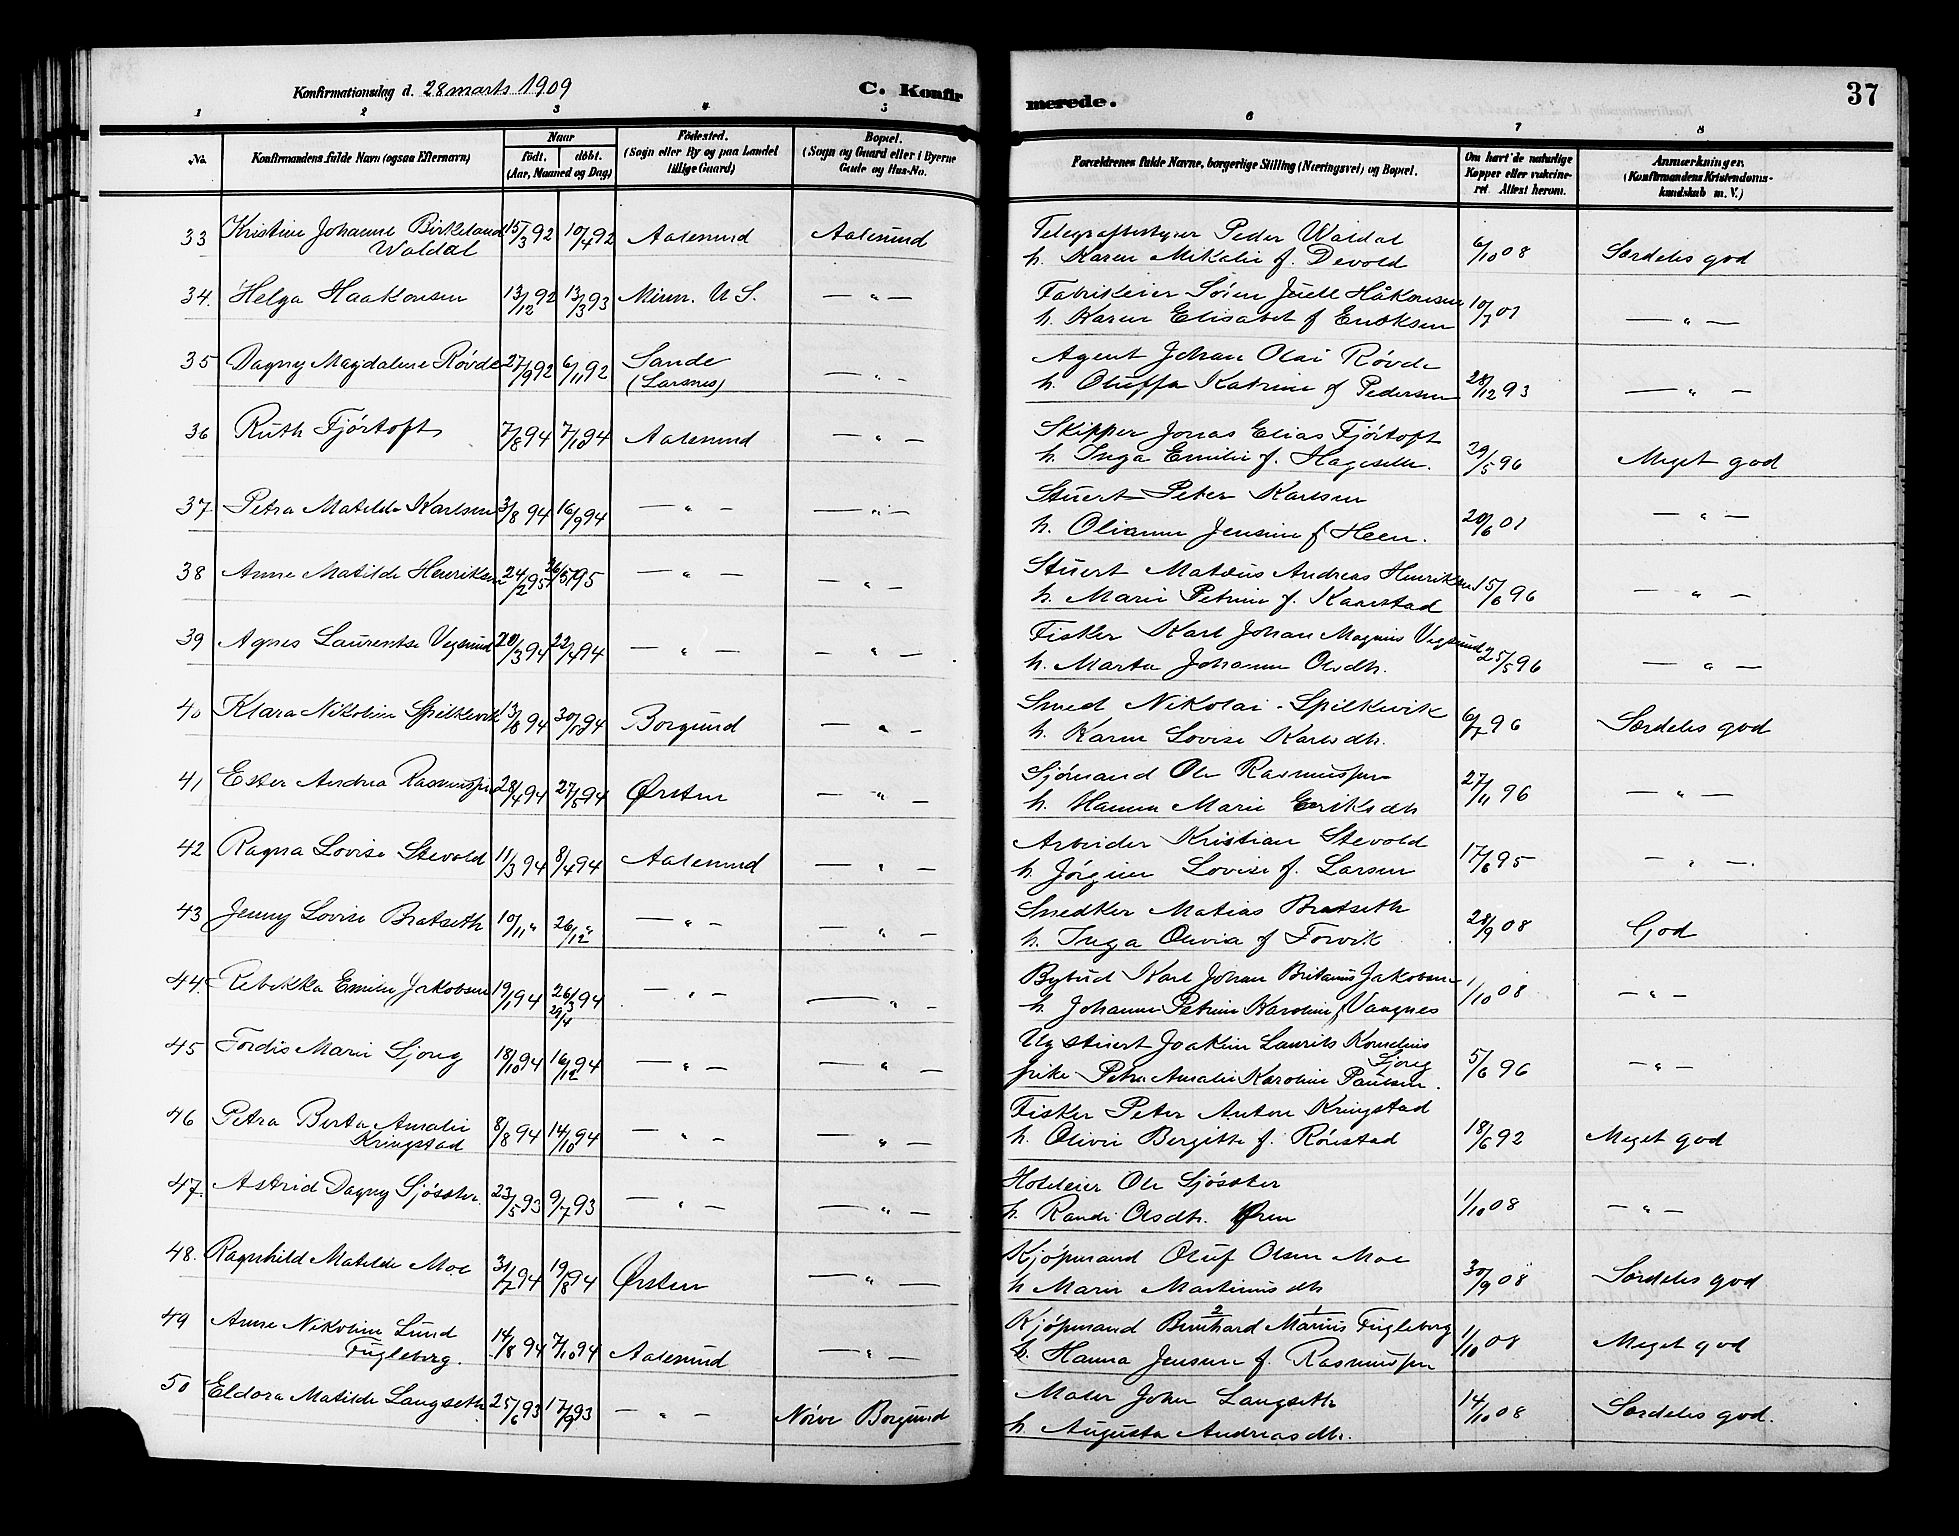 37
Konfirmationsdag d. 28 marts 1909
C. Konfir
merede.
1 2 3 4 5 6 7 8
No.
Konfirmandens fulde Navn (ogsaa Efternavn)
Naar
födt. döbt.
(Aar, Maaned og Dag)
Födested.
(Sogn eller By og paa Landet
tillige Gaard)
Bopæl.
(Sogn og Gaard eller i Byerne
Gade og Hus-No.
Forældrenes fulde Navne, borgerlige Stilling (Næringsvei) og Bopæl.
Om havt de naturlige
Kopper eller vakcine-
ret. Attest herom.
Anmærkninger.
(Konfirmandens Kristendoms-
kundskab m. V.)
33 Kristine Johanne Birkeland 15/3 92 10/4 92 Aalesund Aalesund Telegrafbestyrer Peder Waldal 6/10 08 Særdeles god
Waldal h. Karen Mikalie f. Devold
34. Helga Haakonsen 13/12 92 13/3 93 Minn. U S. — " — Fabrikeier Sören Juell Håkonsen 10/7 01 — " —
h. Karen Elisabet f Eriksen
35 Dagny Magdalene Røvde 27/9 92 6/11 92 Sande — " — Agent Johan Olai Røvde 28/12 93 — " —
(Larsnes) h. Oluffa Katrine f Pedersen
36 Ruth Fjörtoft 7/8 94 7/10 94 Aalesund — " — Skipper Jonas Elias Fjörtoft 29/5 96 Meget god
h. Inga Emilie f. Hagesen.
37 Petra Matilde Karlsen 3/8 94 16/9 94 — " — — " — Stuert Peter Karlsen 20/6 01 — " —
h. Olianne Jensine f Heen.
38 Anne Matilde Henriksen 24/2 95 26/5 95 — " — — " — Stuert Mateus Andreas Henriksen 15/6 96 — " —
h. Marie Petrine f. Kaarstad
39 Agnes Laurentse Vegsund 20/3 94 22/4 94 — " — — " — Fisker Karl Johan Magnus Vegsund 25/5 96 — " —
h. Marta Johanne Olsdh.
40 Klara Nikoline Spilkevik 13/8 94 30/10 94 Borgund — " — Smed Nikolai Spilkevik 6/7 96 Særdeles god
h. Karen Lovise Karlsdh.
41 Ester Andrea Rasmussen 28/4 94 27/5 94 Ørsten — " — Sjömand Ole Rasmussen 27/11 96 — " —
h. Hanna Marie Eriksdh
42 Ragna Lovise Stevold 11/3 94 8/4 94 Aalesund — " — Arbeider Kristian Stevold 17/6 95 — " —.
h. Jørgine Lovise f. Larsen
43 Jenny Lovise Bratseth 10/11 " 26/12 " — " — — " — Snedker Matias Bratseth 28/9 08 God
h. Inga Olivia f Forvik
44 Rebekka Emilie Jakobsen 19/1 94 26/3 94 — " — — " — Bybud Karl Johan Britanus Jakobsen 1/10 08 — " —
29/4 h. Johanne Petrine Karoline f Vaagnes
45 Tordis Marie Sjong 18/10 94 16/12 94 — " — — " — Ug Stuert Joakim Laurits Kornelius 5/6 96 — " —
Sjong
pike Petra Amalie Karoline Paulsen.
46 Petra Berta Amalie 8/8 94 14/10 94 — " — — " — Fisker Peter Anton Kringstad 18/6 92 Meget god
Kringstad h. Olivie Bergitte f. Rönstad
47. Astrid Dagny Sjösæter. 23/5 93 9/7 93 — " — — " — Hoteleier Ole Sjösæter 1/10 08 — " —
h. Randi Olsdh. Øren
48. Ragnhild Matilde Moe 31/7 94 19/8 94 Ørsten — " — Kjöpmand Oluf Olsen Moe 30/9 08 Særdeles god
h Marie Martinusdh
49 Anne Nikoline Lund 14/8 94 7/10 94 Aalesund — " — Kjöpmand Bernhard Marius Fugleberg 1/10 08 Meget god
2 1
Fugleberg. h. Hanna Jensen f. Rasmussen
50 Eldora Matilde Langseth 25/6 93 17/9 93 — " — Nörve Borgund Maler Johan Langseth 14/10 08 Særdeles god.
h Augusta Andreasdh.